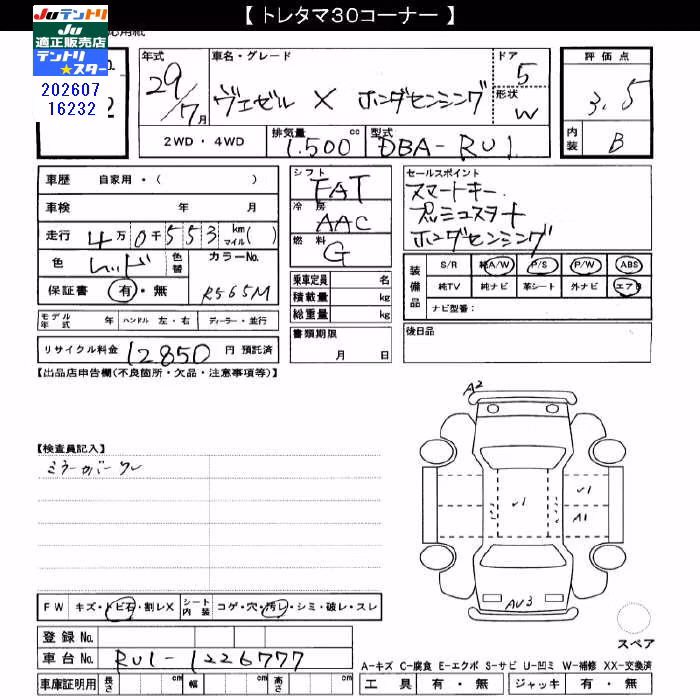 【トレタマ30コーナー】
Juテントリ
Ju
適正販売店
テントリ
★スター
202607
16232
応用紙
No.
2
年式
29/7月
車名・グレード
ヴェゼル X ホンダセンシング
ドア
5
形状
W
評価点
3.5
内装
B
2WD・4WD
排気量 1,500 cc
型式 DBA-RU1
車歴 自家用・( )
車検 年 月
走行 4万0千553 km マイル( )
色 レッド 色替 カラーNo.
保証書 有・無 R565M
モデル年式 年 ハンドル 左・右 ディーラー・並行
リサイクル料金 12850 円 預託済
シフト
FAT
冷房
AAC
燃料
G
乗車定員 名
積載量 kg
総重量 kg
書類期限
月 日
セールスポイント
スマートキー
プッシュスタート
ホンダセンシング
装備品
S/R 純A/W P/S P/W ABS
純TV 純ナビ 革シート 外ナビ エアB
ナビ型番:
後日品
【出品店申告欄(不良箇所・欠品・注意事項等)】
【検査員記入】
ミラーカバーワレ
A2
√1
√1
A1
AU3
スペア
FW キズ・トビ石・割レX シート内装 コゲ・穴・汚レ・シミ・破レ・スレ
登録No.
車台No. RU1-1226777
車庫証明用 長さ cm 幅 cm 高さ cm
A-キズ C-腐食 E-エクボ S-サビ U-凹ミ W-補修 XX-交換済
工具 有・無 ジャッキ 有・無